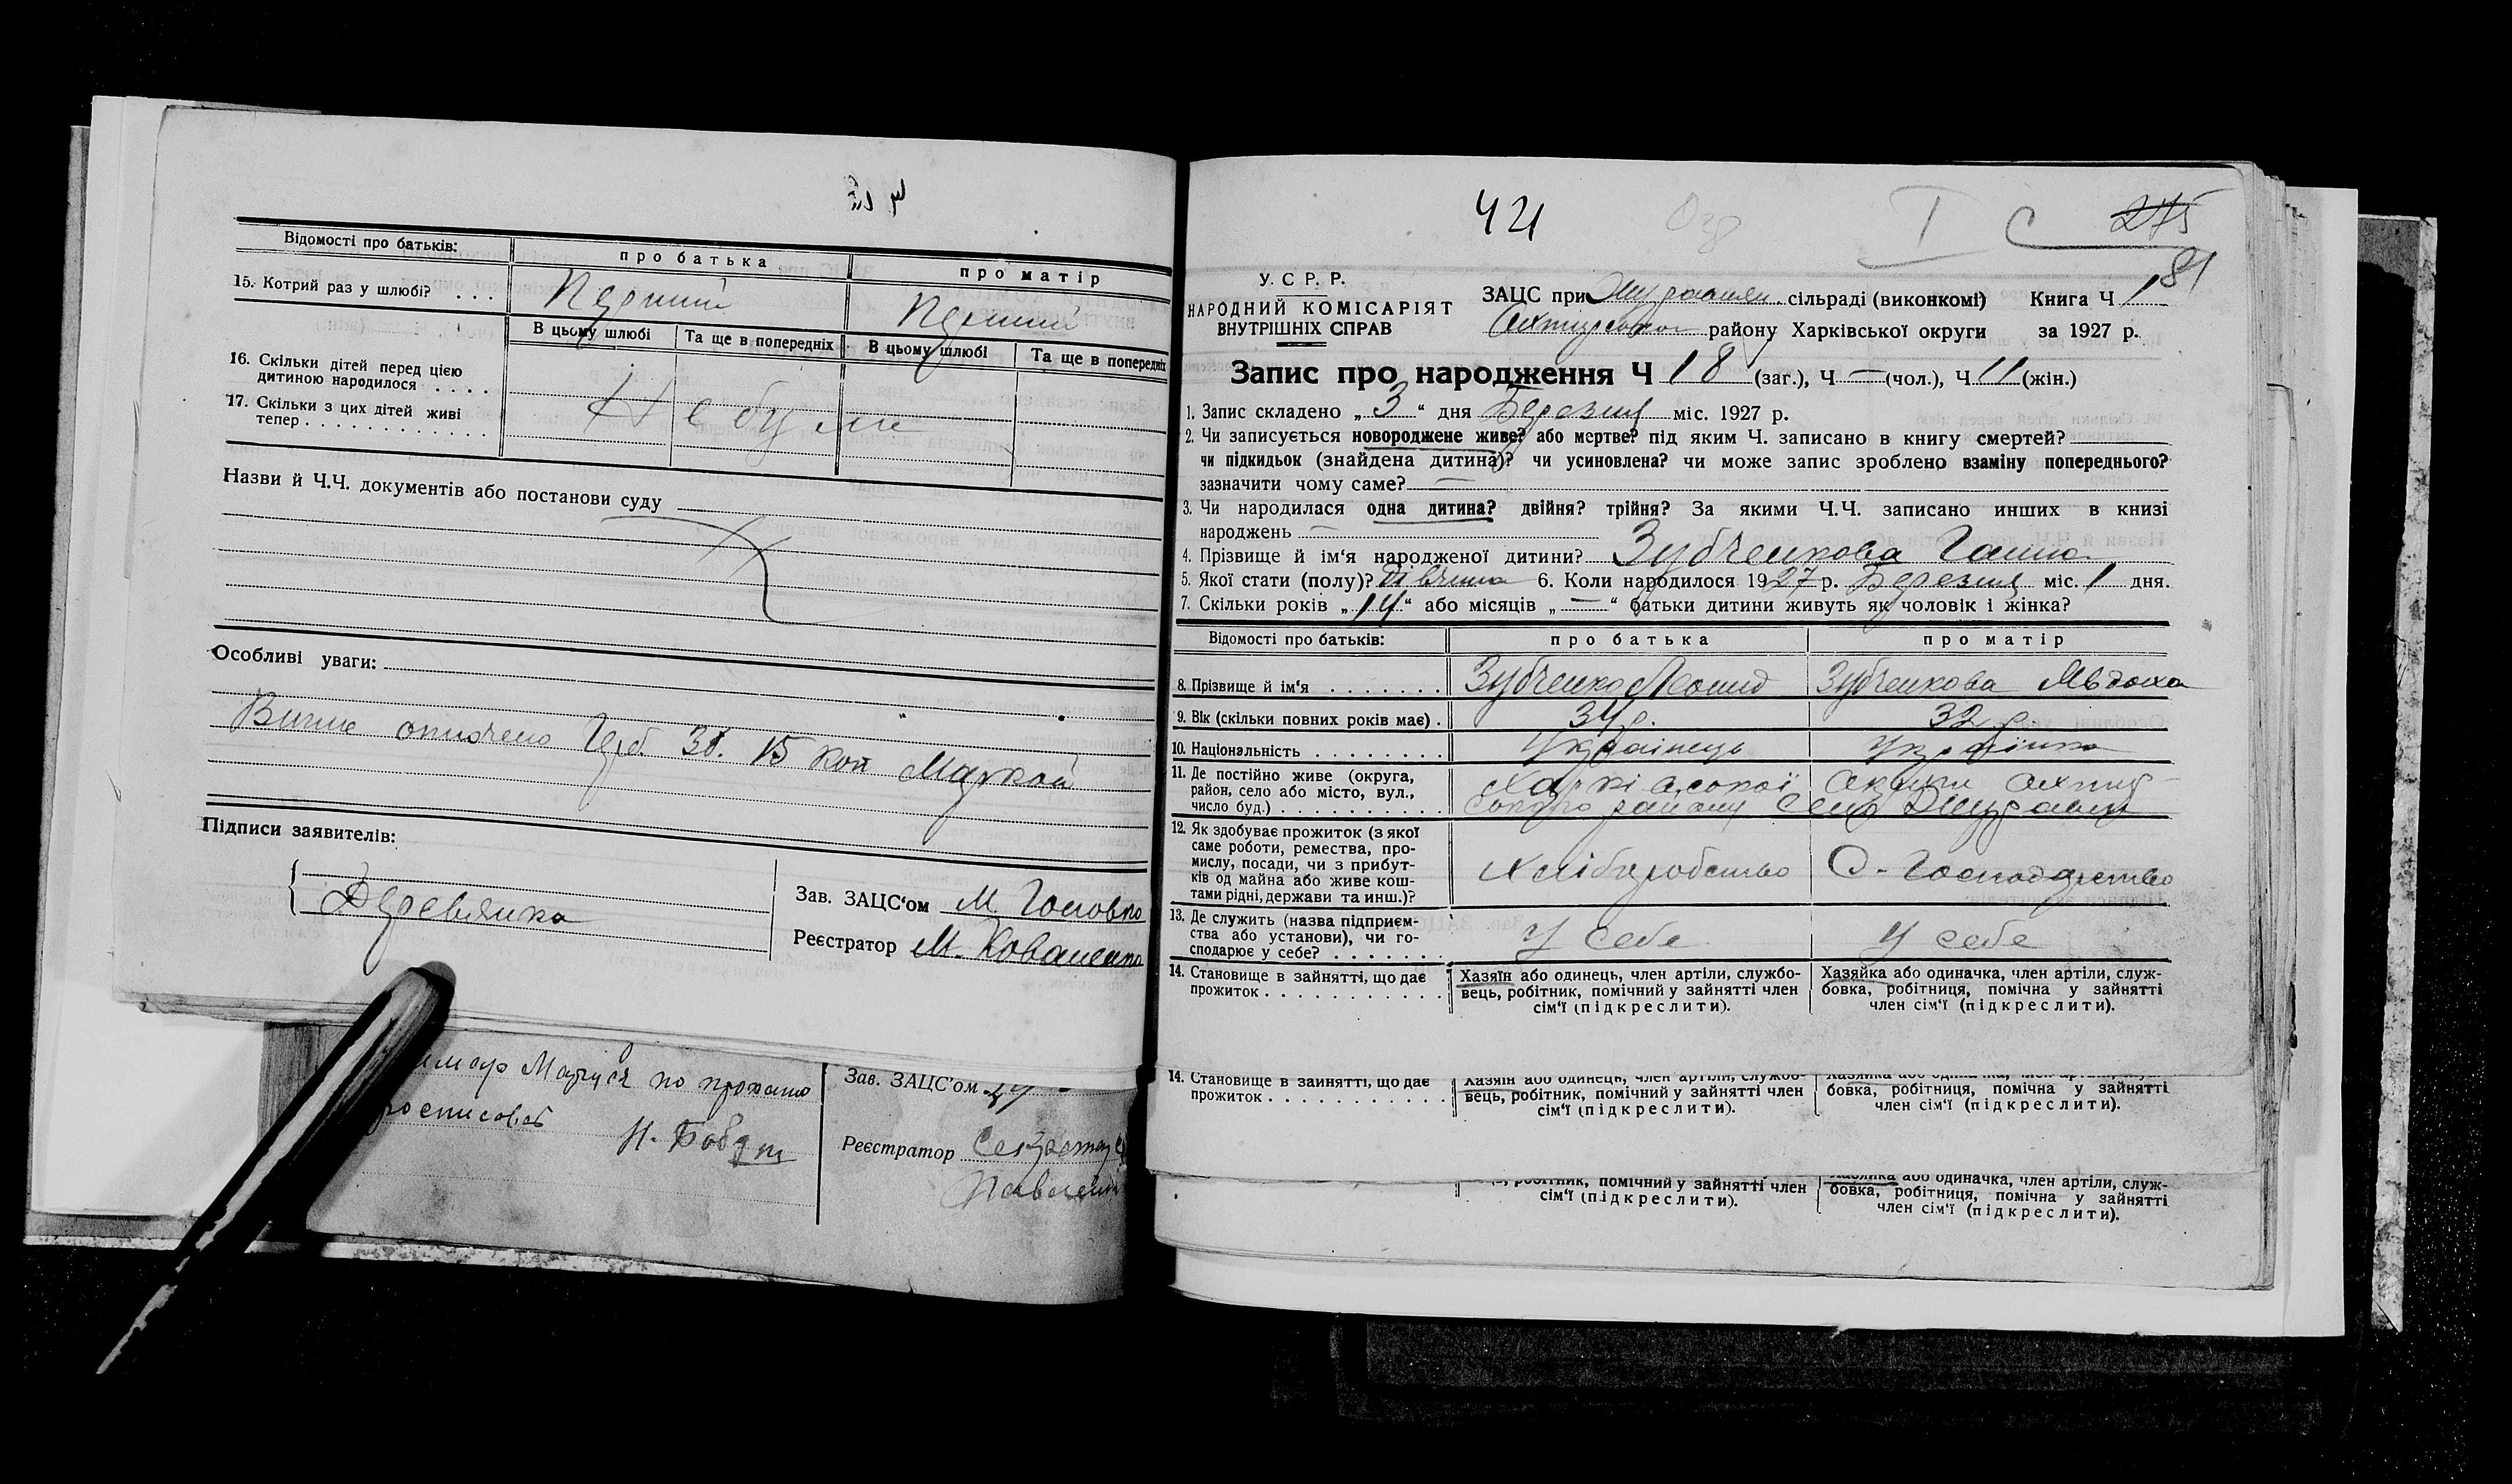 Відомості про батьків:
про батька
про матір
15. Котрий раз у шлюбі? . . .
Перший
Перший
В цьому шлюбі
Та ще в попередніх
В цьому шлюбі
Та ще в попередніх
16. Скільки дітей перед цією
дитиною народилося . . . .
17. Скільки з цих дітей живі
тепер . . . . . . . . . . . . .
Не були
Назви й Ч.Ч. документів або постанови суду
Особливі уваги:
оплочено Герб. Зб. 15 коп Маркой
Підписи заявителів:
Деревянка
Зав. ЗАЦС'ом М. Головко
Реєстратор М. Коваленко
Маруся по прохано
Н.
Зав. ЗАЦС'ом
Реєстратор Секретар
421
І С
275
81
У. С. Р. Р.
НАРОДНИЙ КОМІСАРІЯТ
ВНУТРІШНІХ СПРАВ
ЗАЦС при сільраді (виконкомі) Книга Ч 1
району Харківської округи за 1927 р.
Запис про народження Ч 18 (заг.), Ч — (чол.), Ч 11 (жін.)
1. Запис складено „ 3 “ дня Березня міс. 1927 р.
2. Чи записується новороджене живе? або мертве? під яким Ч. записано в книгу смертей?
чи підкидьок (знайдена дитина)? чи усиновлена? чи може запис зроблено взаміну попереднього?
зазначити чому саме? —
3. Чи народилася одна дитина? двійня? трійня? За якими Ч.Ч. записано инших в книзі
народжень —
4. Прізвище й ім'я народженої дитини? Зубченкова Ганна
5. Якої стати (полу)? дівчина 6. Коли народилося 1927 р. Березня міс. 1 дня.
7. Скільки років „ 14 “ або місяців „ — “ батьки дитини живуть як чоловік і жінка?
Відомості про батьків:
про батька
про матір
8. Прізвище й ім'я . . . . . . .
Зубченко Леонид
Зубченкова Явдоха
9. Вік (скільки повних років має) .
34 р.
32 р.
10. Національність . . . . . . . .
Українець
Українка
11. Де постійно живе (округа,
район, село або місто, вул.,
число буд.) . . . . . . . . . .
Харківської округи Охтир-
ського району Село
12. Як здобуває прожиток (з якої
саме роботи, ремества, про-
мислу, посади, чи з прибут-
ків од майна або живе кош-
тами рідні, держави та инш.)?
Хліборобство
С-Господарство
13. Де служить (назва підприєм-
ства або установи), чи го-
сподарює у себе? . . . . . . .
У себе
У себе
14. Становище в зайнятті, що дає
прожиток . . . . . . . . . . . .
Хазяїн або одинець, член артіли, службо-
вець, робітник, помічний у зайнятті член
сім'ї (підкреслити).
Хазяйка або одиначка, член артіли, служ-
бовка, робітниця, помічна у зайнятті
член сім'ї (підкреслити).
14. Становище в зайнятті, що дає
прожиток . . . . . . . . . . . .
Хазяїн або одинець, член артіли, службо-
вець, робітник, помічний у зайнятті член
сім'ї (підкреслити).
бовка, робітниця, помічна у зайнятті
член сім'ї (підкреслити).
робітник, помічний у зайнятті член
сім'ї (підкреслити).
Хазяйка або одиначка, член артіли, служ-
бовка, робітниця, помічна у зайнятті
член сім'ї (підкреслити).